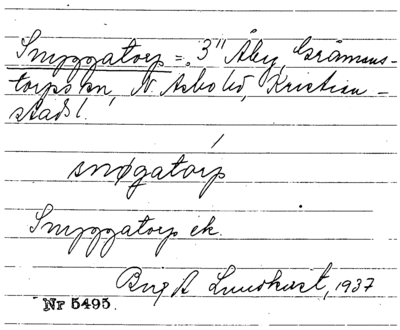 Snyggatorp = 3" Åby, Gråmans-
torps sn, N. Åsbo hd, Kristian-
stads l.
snøgatórp
Snyggatorp ek.
Lundkvist, 1937
Nr 5495.